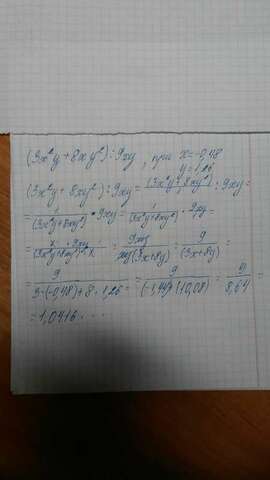 (3x²y + 8xy²) : 9xy , при x = -0,48
y = 1,26
(3x²y + 8xy²) : 9xy = (3x²y + 8xy²)/1 : 9xy =
= 1/(3x²y + 8xy²) · 9xy = 1/(3x²y + 8xy²) · 9xy =
= 9xy/(xy(3x + 8y)) = 9/(3x + 8y) =
9/(3·(-0,48) + 8·1,26) = 9/((-1,44) + (10,08)) = 9/8,64 =
= 1,0416...